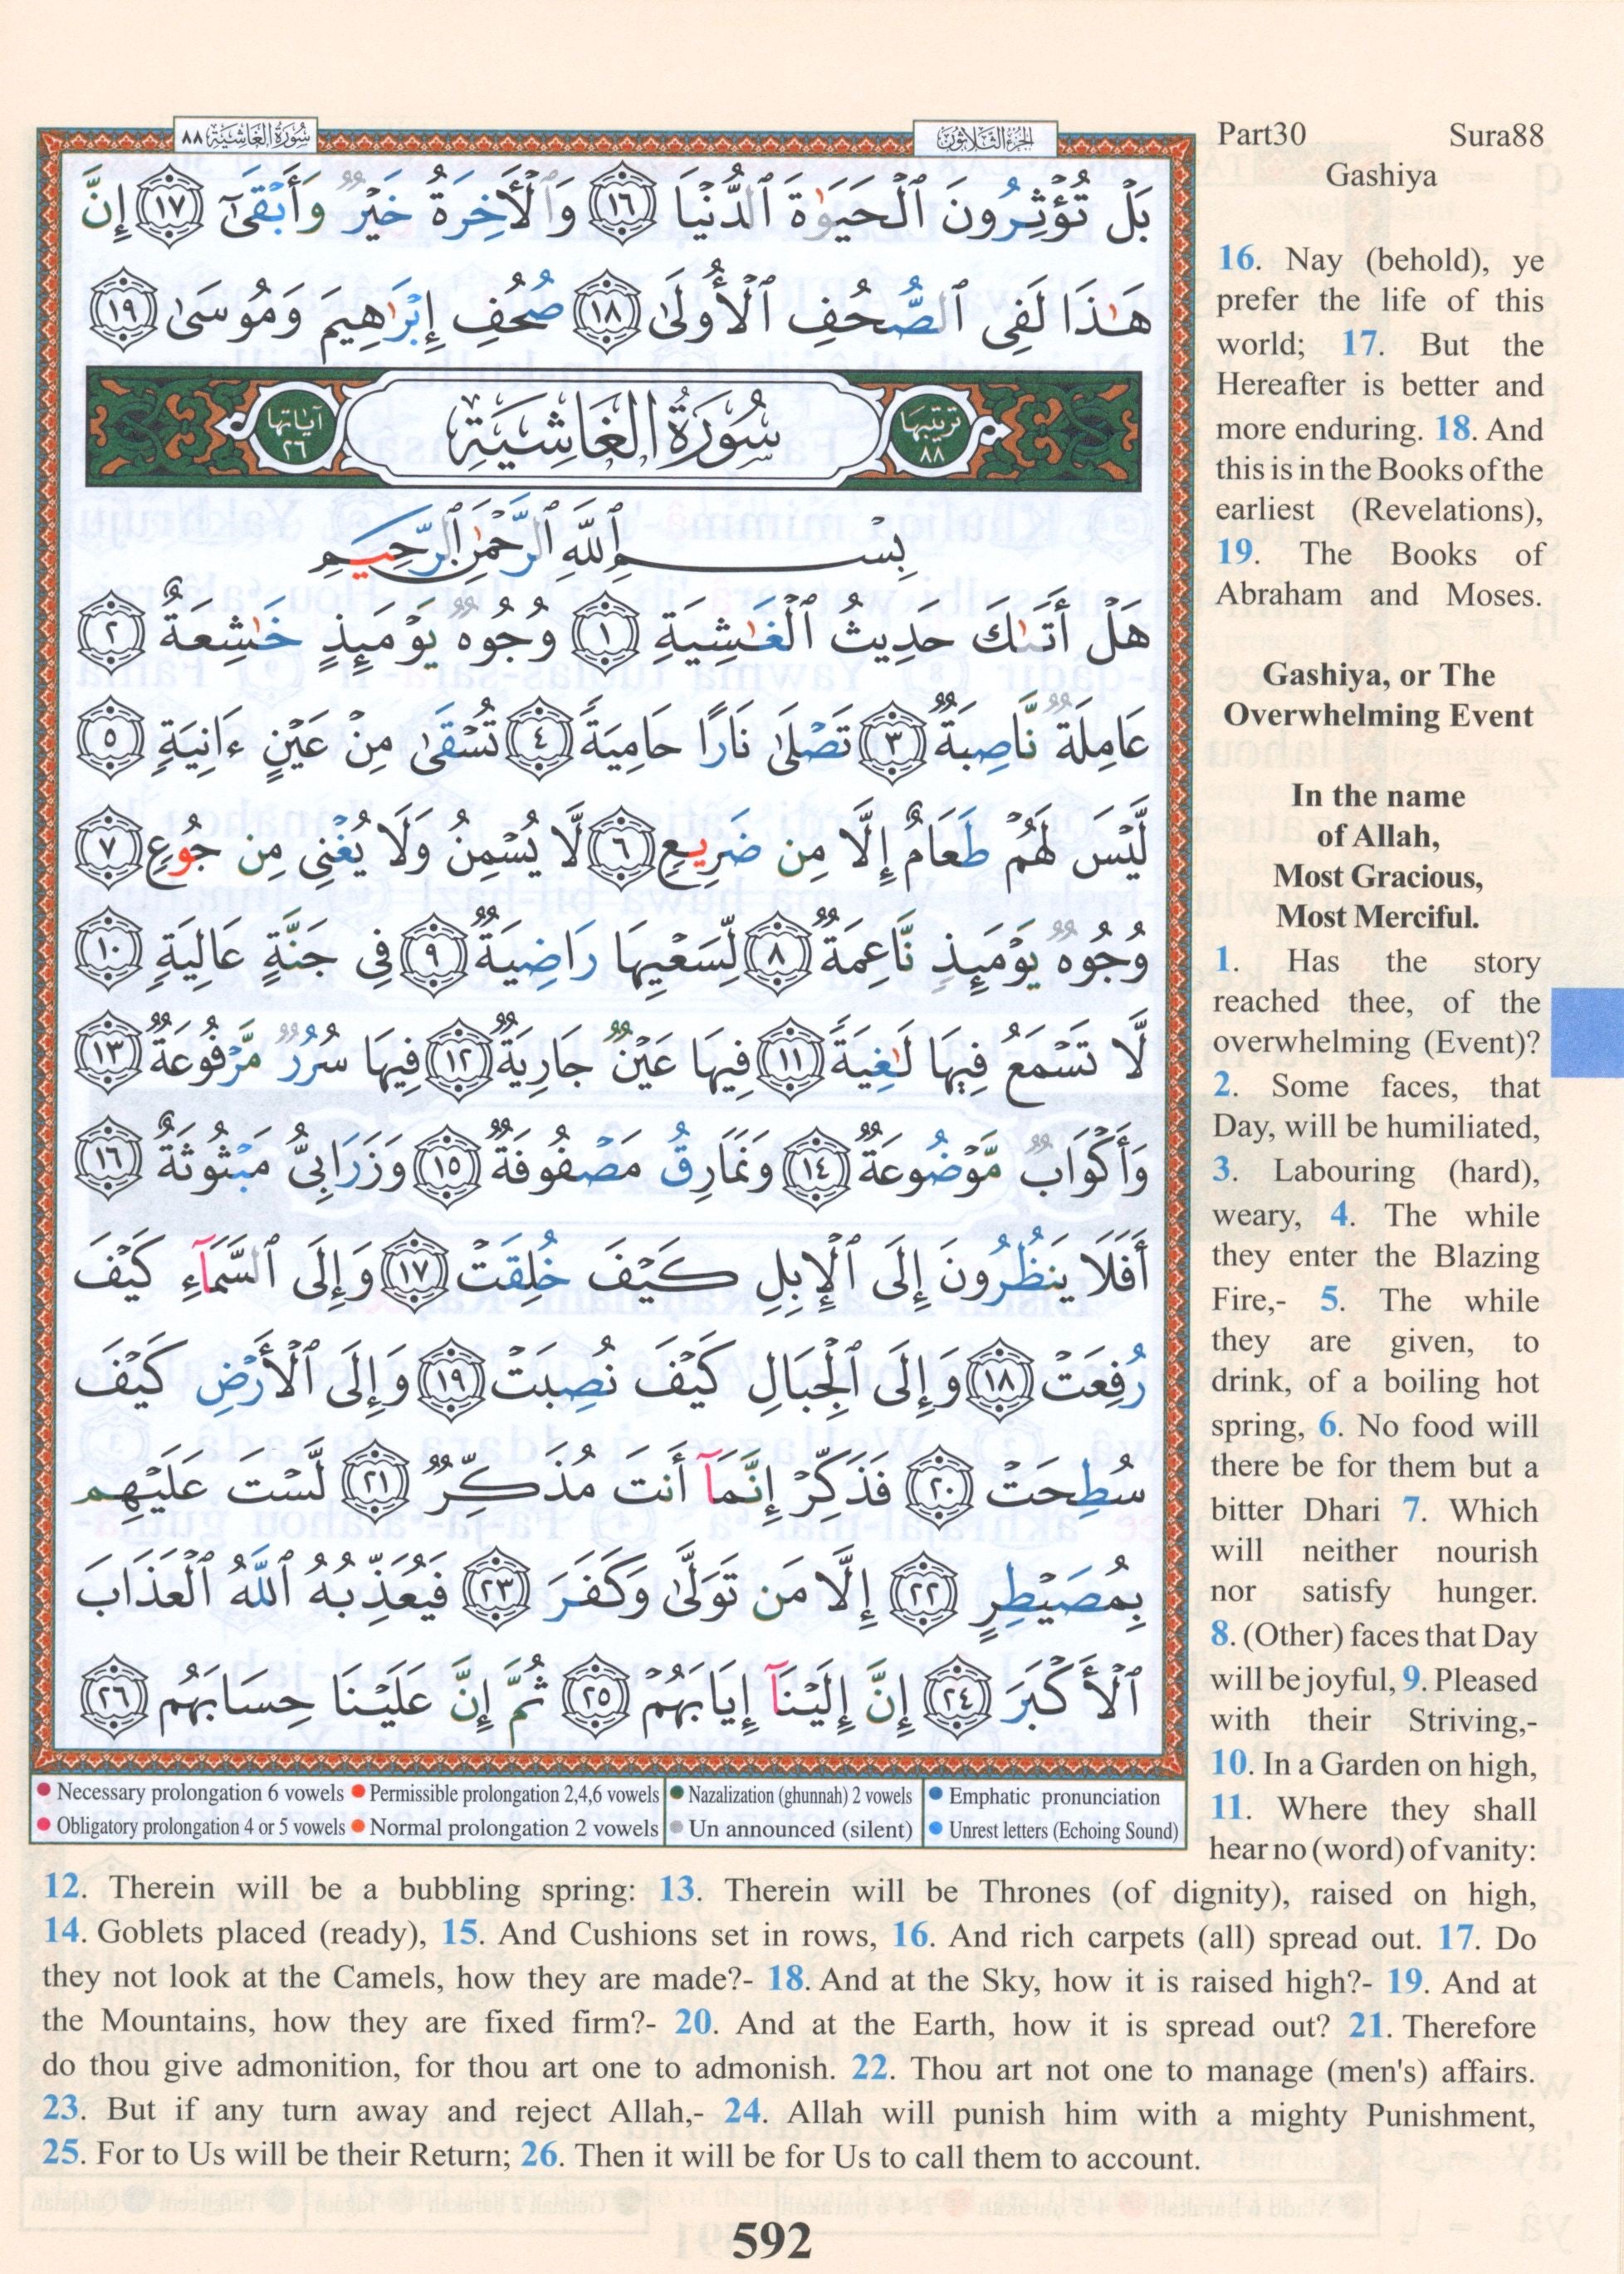 سُورَةُ الغَاشِيَةِ ٨٨
الجُزْءُ الثَّلَاثُونَ
Part30 Sura88
Gashiya
بَلْ تُؤْثِرُونَ ٱلْحَيَوٰةَ ٱلدُّنْيَا ١٦ وَٱلْأَخِرَةُ خَيْرٌ وَأَبْقَىٰٓ ١٧ إِنَّ
هَـٰذَا لَفِى ٱلصُّحُفِ ٱلْأُولَىٰ ١٨ صُحُفِ إِبْرَٰهِيمَ وَمُوسَىٰ ١٩
ترتيبها ٨٨
سُورَةُ الغَاشِيَةِ
آياتها ٢٦
بِسْمِ ٱللَّهِ ٱلرَّحْمَـٰنِ ٱلرَّحِيمِ
هَلْ أَتَىٰكَ حَدِيثُ ٱلْغَـٰشِيَةِ ١ وُجُوهٌ يَوْمَئِذٍ خَـٰشِعَةٌ ٢
عَامِلَةٌ نَّاصِبَةٌ ٣ تَصْلَىٰ نَارًا حَامِيَةً ٤ تُسْقَىٰ مِنْ عَيْنٍ ءَانِيَةٍ ٥
لَّيْسَ لَهُمْ طَعَامٌ إِلَّا مِن ضَرِيعٍ ٦ لَّا يُسْمِنُ وَلَا يُغْنِى مِن جُوعٍ ٧
وُجُوهٌ يَوْمَئِذٍ نَّاعِمَةٌ ٨ لِّسَعْيِهَا رَاضِيَةٌ ٩ فِى جَنَّةٍ عَالِيَةٍ ١٠
لَّا تَسْمَعُ فِيهَا لَـٰغِيَةً ١١ فِيهَا عَيْنٌ جَارِيَةٌ ١٢ فِيهَا سُرُرٌ مَّرْفُوعَةٌ ١٣
وَأَكْوَابٌ مَّوْضُوعَةٌ ١٤ وَنَمَارِقُ مَصْفُوفَةٌ ١٥ وَزَرَابِىُّ مَبْثُوثَةٌ ١٦
أَفَلَا يَنظُرُونَ إِلَى ٱلْإِبِلِ كَيْفَ خُلِقَتْ ١٧ وَإِلَى ٱلسَّمَآءِ كَيْفَ
رُفِعَتْ ١٨ وَإِلَى ٱلْجِبَالِ كَيْفَ نُصِبَتْ ١٩ وَإِلَى ٱلْأَرْضِ كَيْفَ
سُطِحَتْ ٢٠ فَذَكِّرْ إِنَّمَآ أَنتَ مُذَكِّرٌ ٢١ لَّسْتَ عَلَيْهِم
بِمُصَيْطِرٍ ٢٢ إِلَّا مَن تَوَلَّىٰ وَكَفَرَ ٢٣ فَيُعَذِّبُهُ ٱللَّهُ ٱلْعَذَابَ
ٱلْأَكْبَرَ ٢٤ إِنَّ إِلَيْنَآ إِيَابَهُمْ ٢٥ ثُمَّ إِنَّ عَلَيْنَا حِسَابَهُم ٢٦
Necessary prolongation 6 vowels Permissible prolongation 2,4,6 vowels Nazalization (ghunnah) 2 vowels Emphatic pronunciation
Obligatory prolongation 4 or 5 vowels Normal prolongation 2 vowels Un announced (silent) Unrest letters (Echoing Sound)
16. Nay (behold), ye
prefer the life of this
world; 17. But the
Hereafter is better and
more enduring. 18. And
this is in the Books of the
earliest (Revelations),
19. The Books of
Abraham and Moses.
Gashiya, or The
Overwhelming Event
In the name
of Allah,
Most Gracious,
Most Merciful.
1. Has the story
reached thee, of the
overwhelming (Event)?
2. Some faces, that
Day, will be humiliated,
3. Labouring (hard),
weary, 4. The while
they enter the Blazing
Fire,- 5. The while
they are given, to
drink, of a boiling hot
spring, 6. No food will
there be for them but a
bitter Dhari 7. Which
will neither nourish
nor satisfy hunger.
8. (Other) faces that Day
will be joyful, 9. Pleased
with their Striving,-
10. In a Garden on high,
11. Where they shall
hear no (word) of vanity:
12. Therein will be a bubbling spring: 13. Therein will be Thrones (of dignity), raised on high,
14. Goblets placed (ready), 15. And Cushions set in rows, 16. And rich carpets (all) spread out. 17. Do
they not look at the Camels, how they are made?- 18. And at the Sky, how it is raised high?- 19. And at
the Mountains, how they are fixed firm?- 20. And at the Earth, how it is spread out? 21. Therefore
do thou give admonition, for thou art one to admonish. 22. Thou art not one to manage (men's) affairs.
23. But if any turn away and reject Allah,- 24. Allah will punish him with a mighty Punishment,
25. For to Us will be their Return; 26. Then it will be for Us to call them to account.
592